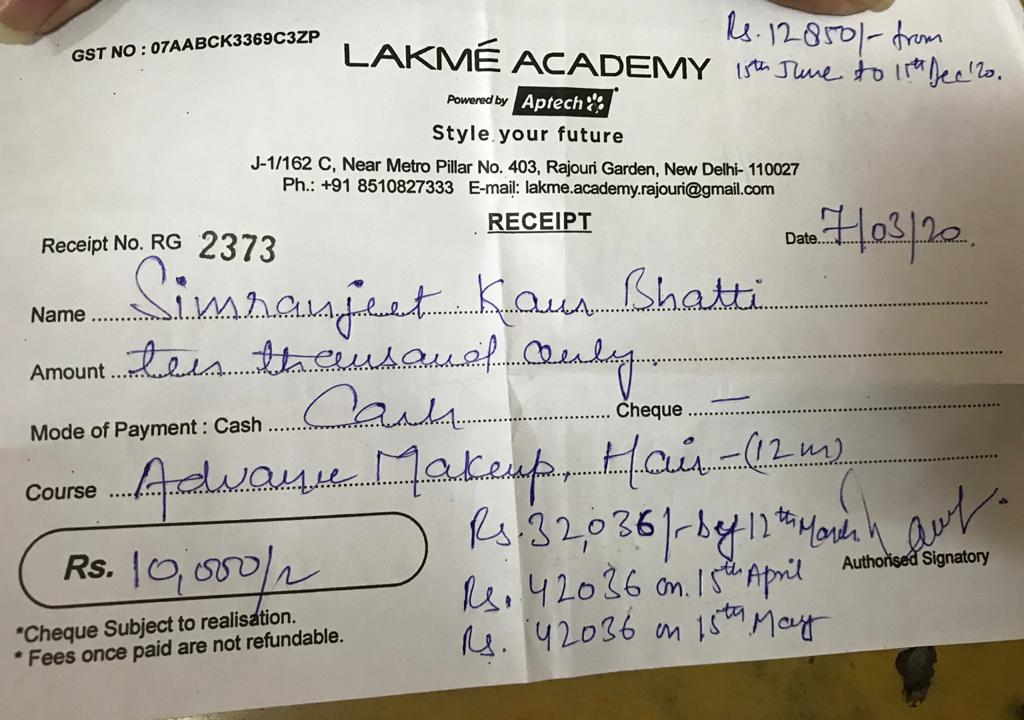 GST NO : 07AABCK3369C3ZP
Rs. 12850/- from
15th June to 15th Dec'20.
LAKMÉ ACADEMY
Powered by Aptech
Style your future
J-1/162 C, Near Metro Pillar No. 403, Rajouri Garden, New Delhi- 110027
Ph.: +91 8510827333 E-mail: lakme.academy.rajouri@gmail.com
RECEIPT
Receipt No. RG 2373
Date 7/03/20.
Name Simranjeet Kaur Bhatti
Amount ten thousand only.
Mode of Payment : Cash Cash Cheque —
Course Advance Makeup, Hair - (12m)
Rs. 32,036/- by 12th March
Authorised Signatory
Rs. 10,000/-
Rs. 42036 on 15th April
Rs. 42036 on 15th May
*Cheque Subject to realisation.
* Fees once paid are not refundable.